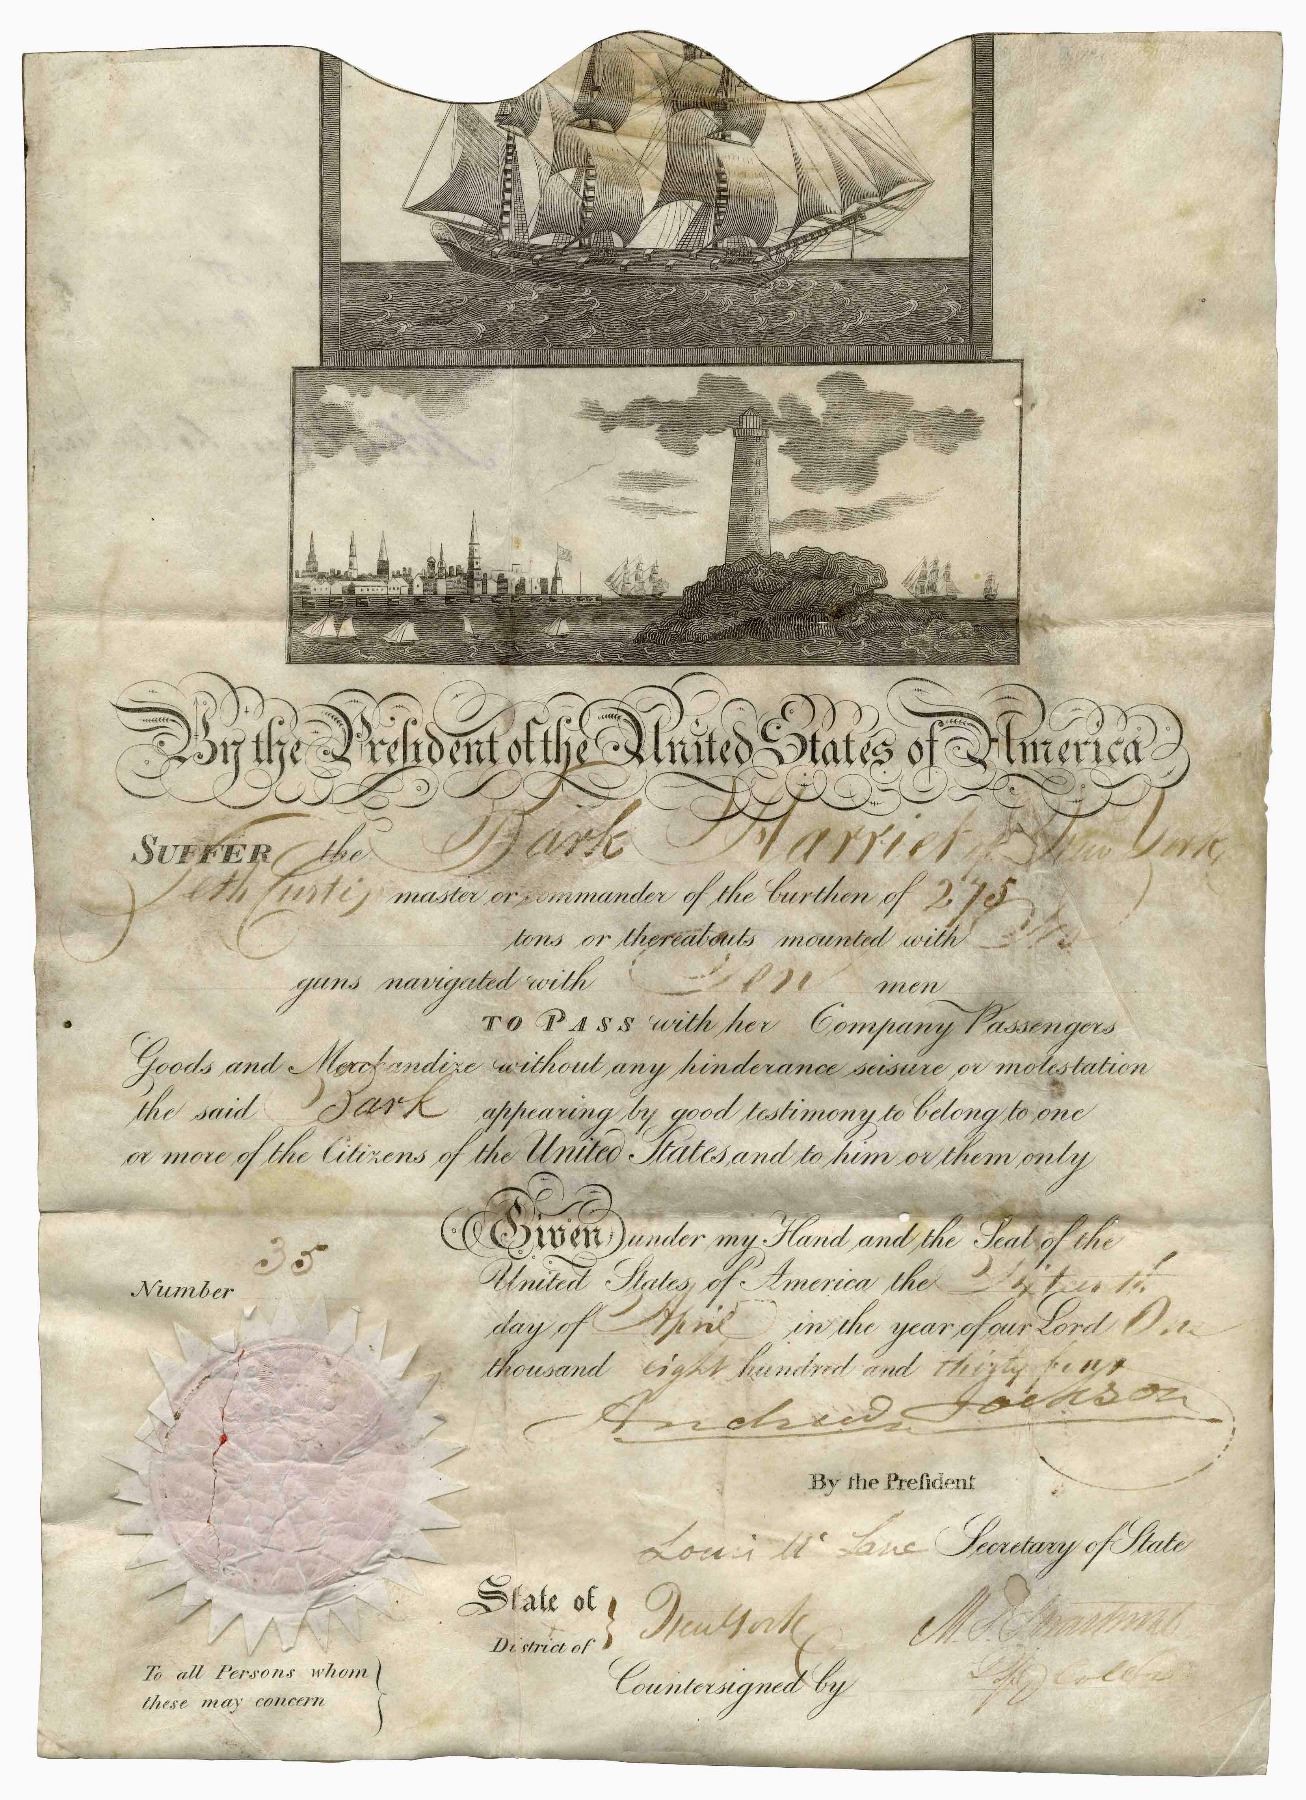 By the President of the United States of America
SUFFER the Bark Harriet of New York
Seth Curtis master or commander of the burthen of 275
tons or thereabouts mounted with No
guns navigated with Ten men
TO PASS with her Company Passengers
Goods and Merchandize without any hinderance seisure or molestation
the said Bark appearing by good testimony to belong to one
or more of the Citizens of the United States and to him or them only
Given under my Hand and the Seal of the
United States of America the
day of April in the year of our Lord One
thousand eight hundred and thirty four
Andrew Jackson
By the President
Louis McLane Secretary of State
Number 35
State of
District of } New York
Countersigned by
To all Persons whom
these may concern }